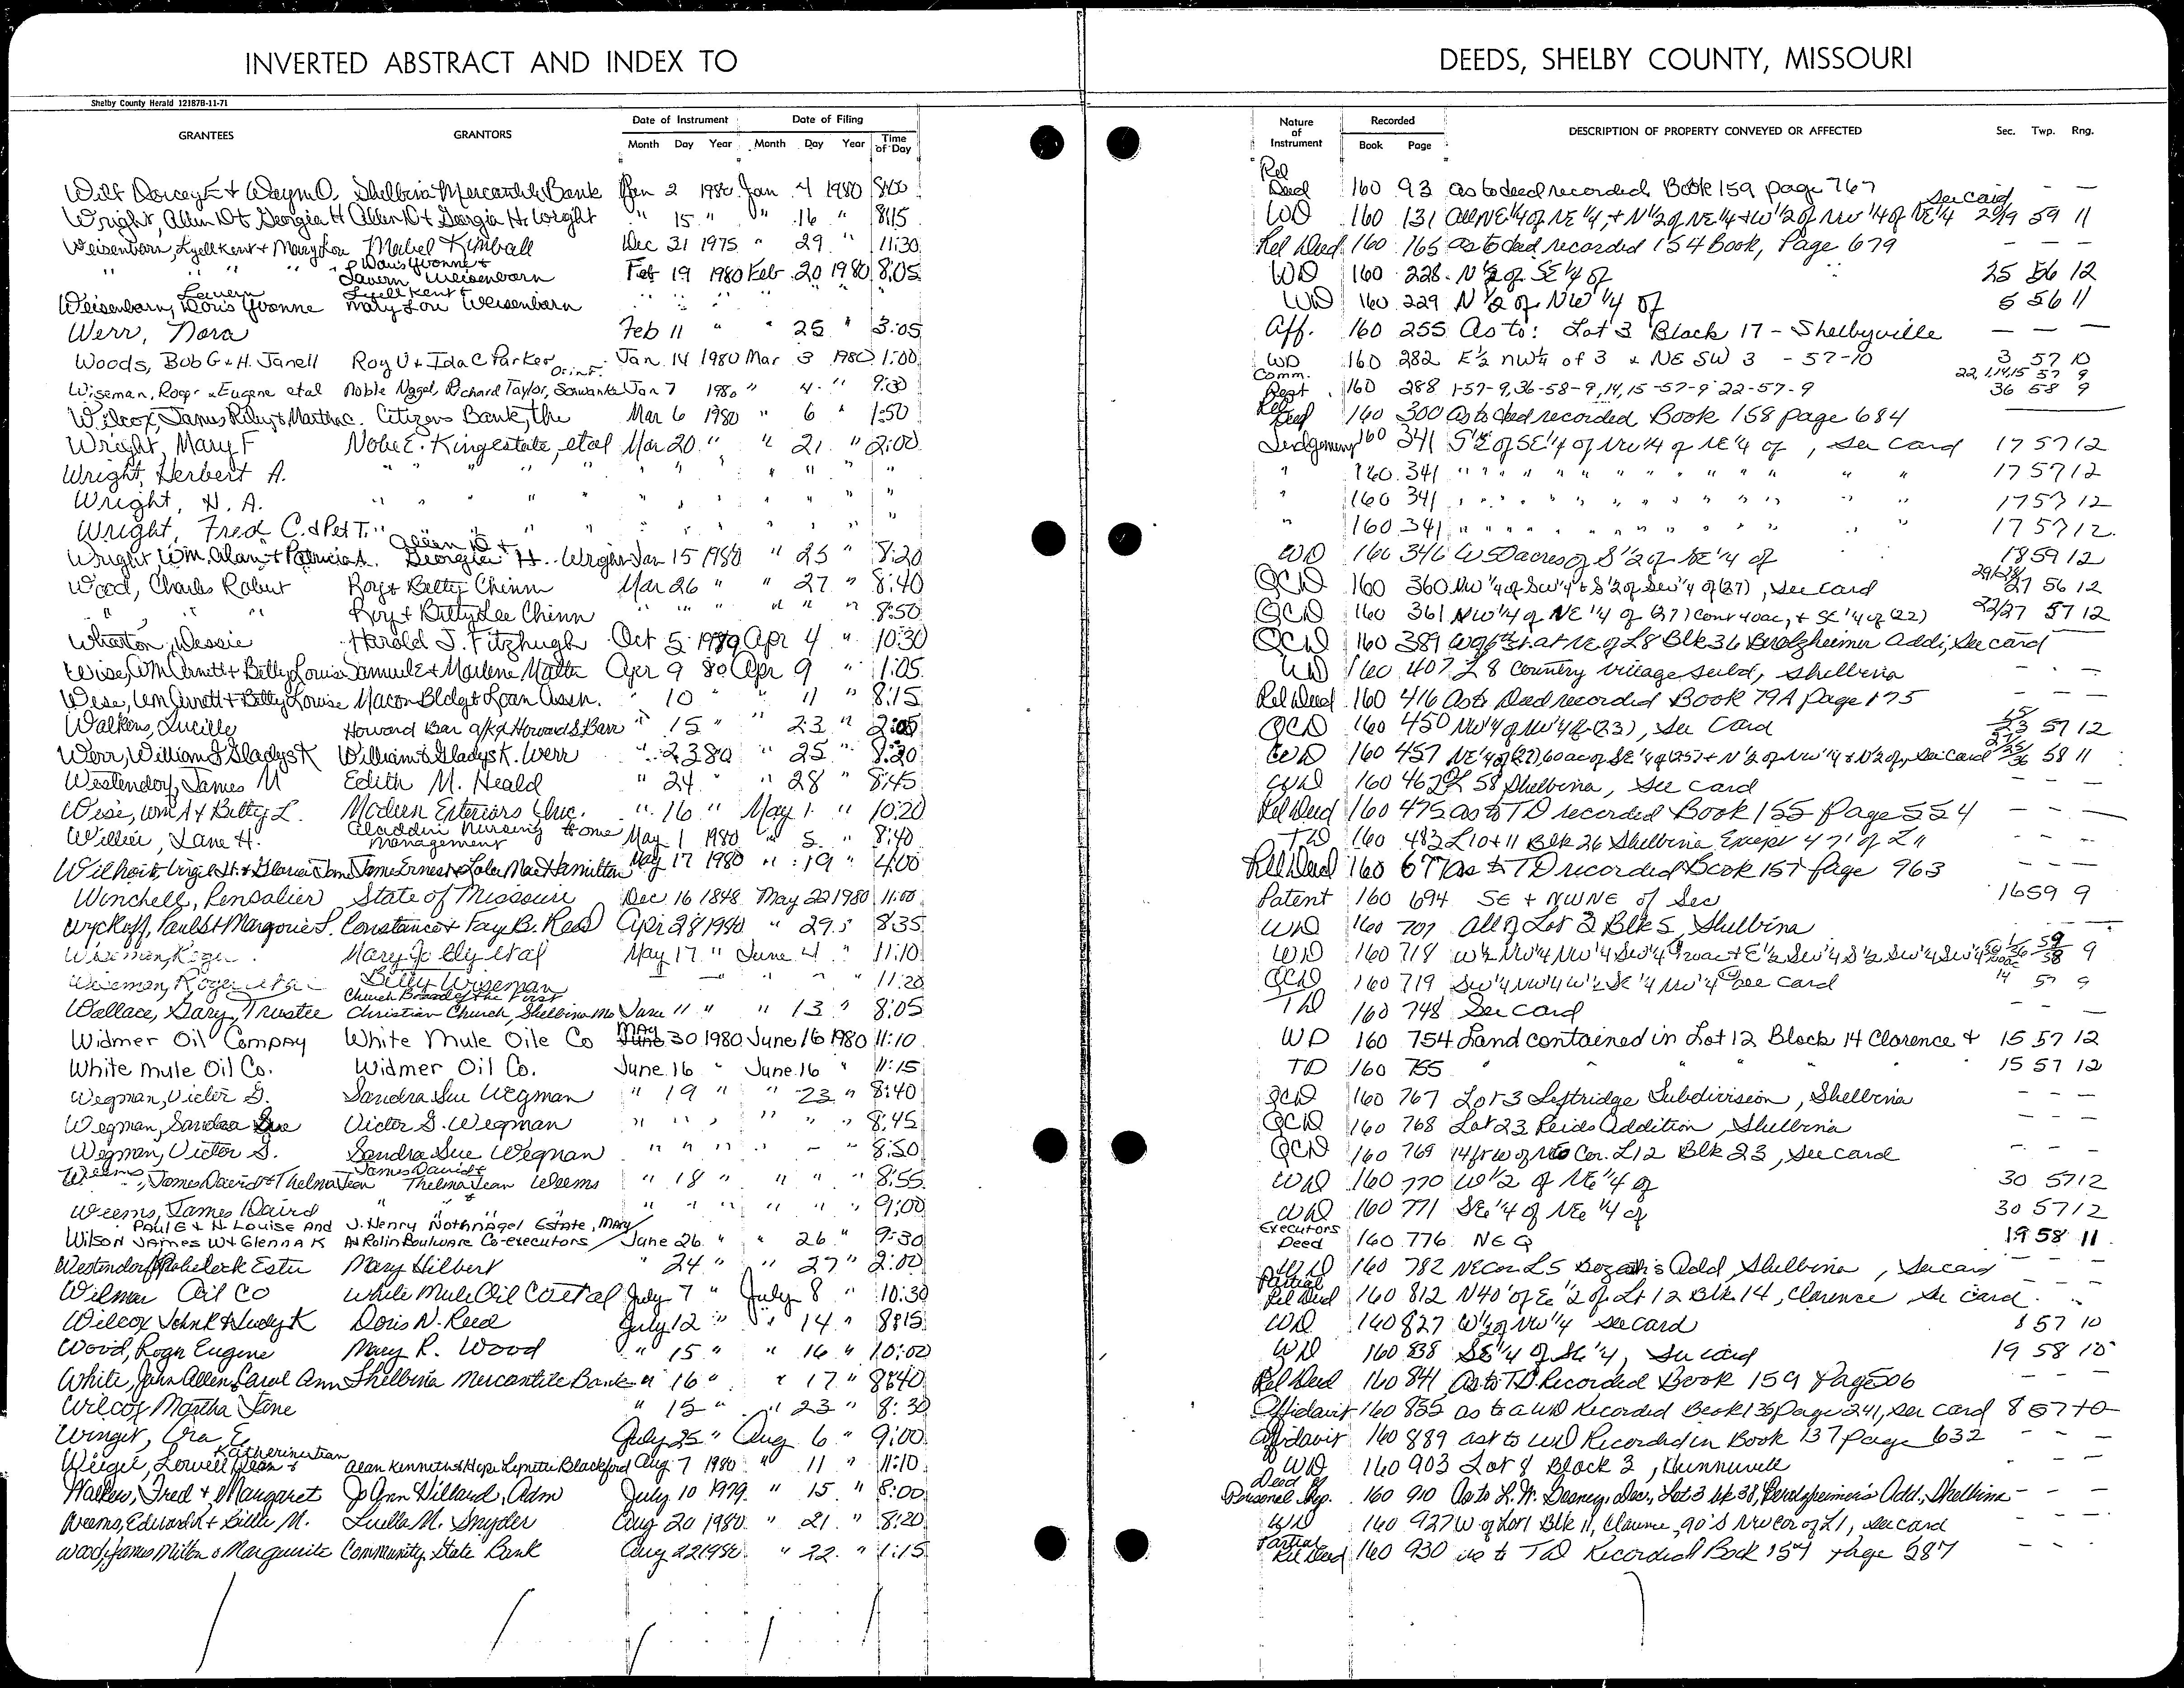 INVERTED ABSTRACT AND INDEX TO
DEEDS, SHELBY COUNTY, MISSOURI
Shelby County Herald 12187B-11-71
GRANTEES GRANTORS Date of Instrument Date of Filing Time of Day
Month Day Year Month Day Year
Nature of Instrument Recorded Book Page DESCRIPTION OF PROPERTY CONVEYED OR AFFECTED Sec. Twp. Rng.
Wilt Dorcey E + Wayn O. Shelbina Mercantile Bank Jan 2 1980 Jan 4 1980 8:00 Rel Deed 160 93 as to deed recorded Book 159 page 767 — —
Wright, Allen D & Georgia H Allen D + Georgia H. Wright " 15 " " 16 " 8:15 WD 160 131 All NE 1/4 of NE 1/4, + N 1/2 of NE 1/4 + W 1/2 of NW 1/4 of NE 1/4 See card 29/19 59 11
Weisenborn, Lyell Kent + Mary Lou Mabel Kimball Dec 31 1975 " 29 " 11:30 Rel Deed 160 165 as to deed recorded 154 Book, Page 679 — — —
" " " Doris Yvonne + Lavern Weisenborn Feb 19 1980 Feb 20 1980 8:05 WD 160 228 N 1/2 of SE 1/4 of 25 56 12
Weisenborn, Lavern Doris Yvonne Lyell Kent + Mary Lou Weisenborn " " " " " " WD 160 229 N 1/2 of NW 1/4 of 5 56 11
Werr, Nora Feb 11 " " 25 " 3:05 Aff. 160 255 As to: Lot 3 Block 17 - Shelbyville — — —
Woods, Bob G & H. Janell Roy U & Ida C Parker Jan 14 1980 Mar 3 1980 1:00 WD 160 282 E 1/2 NW 1/4 of 3 & NE SW 3 - 57-10 3 57 10
Wiseman, Roger & Eugene etal Noble Nagel, Richard Taylor, Schwanke Jan 7 1980 " 4 " 9:30 Comm. Rept 160 288 1-57-9, 36-58-9, 14, 15-57-9 22-57-9 22,1,14,15 57 9 36 58 9
Wilcox, James Riley & Martha Citizens Bank, the Mar 6 1980 " 6 " 1:50 Rel Deed 160 300 as to deed recorded Book 158 page 684
Wright, Mary F Nobe E. King estate, etal Mar 20 " " 21 " 2:00 Judgement 160 341 S 1/2 of SE 1/4 of NW 1/4 of NE 1/4 of, See card 17 57 12
Wright, Herbert A. " " " " " " " " " " 160 341 " " " " " " " " 17 57 12
Wright, H. A. " " " " " " " " " " 160 341 " " " " " " " " 17 57 12
Wright, Fred C. & Pet T. " " " " " " " " " " 160 341 " " " " " " " " 17 57 12
Wright Wm. Alan + Patricia A. Allen D + Georgia H. Wright Jan 15 1980 " 25 " 8:20 WD 160 346 W 50 acres of S 1/2 of NE 1/4 of 18 59 12
Wood, Charles Robert Roy + Betty Chinn Mar 26 " " 27 " 8:40 QCD 160 360 NW 1/4 of SW 1/4 + S 1/2 of SW 1/4 of (27), see card 27 56 12
" " " Roy + Betty Lee Chinn " " " " " " 8:50 QCD 160 361 NW 1/4 of NE 1/4 of (27) cont 40ac, + SE 1/4 of (22) 22/27 57 12
Wharton, Dessie Harold J. Fitzhugh Oct 5 1979 Apr 4 " 10:30 QCD 160 389 at NE of L8 Blk 36 Benlzheimer Addi, See card
Wise, Wm Arnett + Betty Louise Samuel E + Marlene Apr 9 80 Apr 9 " 1:05 WD 160 407 L 8 Country Village Subd, Shelbina — —
Wise, Wm Arnett + Betty Louise Macon Bldg & Loan Assn. " 10 " " 11 " 8:15 Rel Deed 160 416 As to Deed recorded Book 79A page 175 — — —
Walkens, Lucille Howard Bar a/k/a Howard S Barr " 15 " " 23 " 2:05 QCD 160 450 NW 1/4 of NW 1/4 of (23), See Card 15/23 57 12
Werr, William & Gladys K William & Gladys K. Werr " 23 80 " 25 " 8:20 WD 160 457 NE 1/4 of (27) 60 ac of SE 1/4 of (25) + N 1/2 of NW 1/4 + N 1/2 of, See Card 58 11
Westendorf, James M Edith M. Heald " 24 " " 28 " 8:45 WD 160 462 58 Shelbina, See card — —
Wise, Wm A + Betty L. Modern Exteriors Inc. " 16 " May 1 " 10:20 Rel Deed 160 475 as to TD recorded Book 155 Page 554 — — —
Willer, Lane H. Aladdin Nursing Home Management May 1 1980 " 5 " 8:40 TD 160 483 L 10+11 Blk 26 Shelbina Except 47' of L 11 — — —
Wilhoit, Virgil H. + Gloria Jane James Ernest & Lola Mae Hamilton May 17 1980 " 19 " 4:00 Rel Deed 160 677 As to TD recorded Book 157 Page 963 — — —
Winchell, Rensalier State of Missouri Dec 16 1848 May 22 1980 11:00 Patent 160 694 SE + NWNE of Sec 16 59 9
Wyckoff, Paul S + Margorie L. Constance + Fay B. Reed Apr 28 1980 " 29 " 8:35 WD 160 707 All of Lot 2 Blk 5, Shelbina
Wiseman, Roger Mary Jo Ely etal May 17 " June 4 " 11:10 WD 160 718 W 1/2 NW 1/4 NW 1/4 SW 1/4 + E 1/2 SW 1/4 S 1/2 SW 1/4 SW 1/4 9
Wiseman, Roger etal Billy Wiseman — " " " 11:20 QCD 160 719 SW 1/4 NW 1/4 W 1/2 SE 1/4 NW 1/4 See card 14 57 9
Wallace, Gary, Trustee Church Board of the First Christian Church, Shelbina Mo June 11 " " 13 " 8:05 TD 160 748 See card — —
Widmer Oil Compay White Mule Oile Co May 30 1980 June 16 1980 11:10 WD 160 754 Land contained in Lot 12 Block 14 Clarence & 15 57 12
White Mule Oil Co. Widmer Oil Co. June 16 " June 16 " 11:15 TD 160 755 " " " " 15 57 12
Wegman, Victor G. Sandra Sue Wegman " 19 " " 23 " 8:40 QCD 160 767 Lot 3 Leftridge Subdivision, Shelbina — — —
Wegman, Sandra Sue Victor G. Wegman " " " " " " 8:45 QCD 160 768 Lot 23 Reids Addition, Shelbina — — —
Wegman, Victor G. Sandra Sue Wegman " " " " — " 8:50 QCD 160 769 14ft W of Cor. L12 Blk 23, See card — — —
Weems, James David & Thelma Jean James David & Thelma Jean Weems " 18 " " " " 8:55 WD 160 770 W 1/2 of NE 1/4 of 30 57 12
Weems, James Daird " " " " " " " 9:00 WD 160 771 SE 1/4 of NE 1/4 of 30 57 12
Wilson Paul E & H. Louise And James W & Glenna K J. Henry Nothnagel Estate, Mary A & Rolin Boulware Co-executors June 26 " " 26 " 9:30 Executors Deed 160 776 NE Q 19 58 11
Westendorf Estu Mary Hilbert " 24 " " 27 " 2:00 WD 160 782 NE Cor L5 Add, Shelbina, See card — —
Wilmar Oil Co White Mule Oil Co etal July 7 " July 8 " 10:30 Partial Rel Deed 160 812 N40' of E 1/2 of Lt 12 Blk 14, Clarence See card
Wilcox John R & Judy K Doris N. Reed July 12 " " 14 " 8:15 WD 160 827 W 1/2 of NW 1/4 see card 8 57 10
Wood, Roger Eugene Mary R. Wood " 15 " " 16 " 10:00 WD 160 838 SE 1/4 of SE 1/4, See card 19 58 10
White, John Allen & Carol Ann Shelbina Mercantile Bank " 16 " " 17 " 8:40 Rel Deed 160 841 As to TD Recorded Book 159 Page 506 — — —
Wilcox Martha Jane " 15 " " 23 " 8:30 Affidavit 160 855 as to a WD Recorded Book 135 page 241, see card 8 57 10
Winget, Ora E. July 25 " Aug 6 " 9:00 Affidavit 160 889 as to WD Recorded in Book 137 page 632 — — —
Lowell Dean & Katherine Jean Alan Kenneth & Hope Lynette Blackford Aug 7 1980 " 11 " 11:10 WD 160 903 Lot 8 Block 2, Hunnewell
Fred & Margaret Jo Ann Willard, Adm July 10 1979 " 15 " 8:00 Deed of Personal Rep. 160 910 As to L. W. Dec., Lot 3 Blk 38, Add., Shelbina — — —
Weems, Edward R + Billie M. Luella M. Snyder Aug 20 1980 " 21 " 8:20 WD 160 927 W of Lot 1 Blk 11, Clarence, 90' S NW cor of L1, see card — — —
Wood, James Milton & Marguerite Community State Bank Aug 22 1980 " 22 " 1:15 Partial Rel Deed 160 930 as to TD Recorded Book 154 page 287 — — —